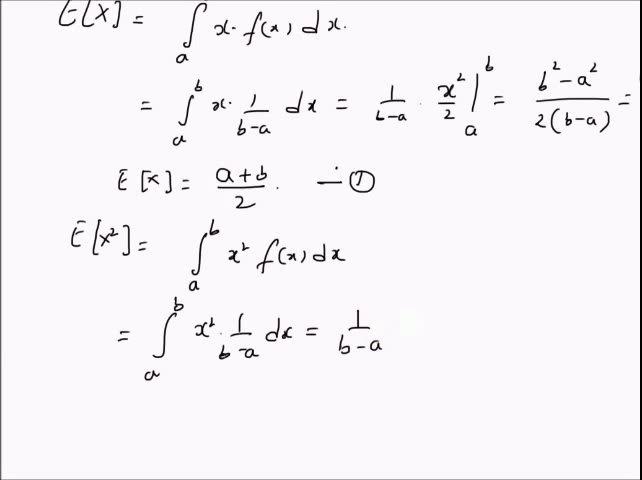 E[X] = ∫ₐ x · f(x) dx.
= ∫ₐᵇ x · 1/(b-a) dx = 1/(b-a) · x²/2 |ₐᵇ = (b² - a²)/(2(b-a)) =
E[X] = (a+b)/2 . — ①
E[X²] = ∫ₐᵇ x² f(x) dx
= ∫ₐᵇ x² · 1/(b-a) dx = 1/(b-a)